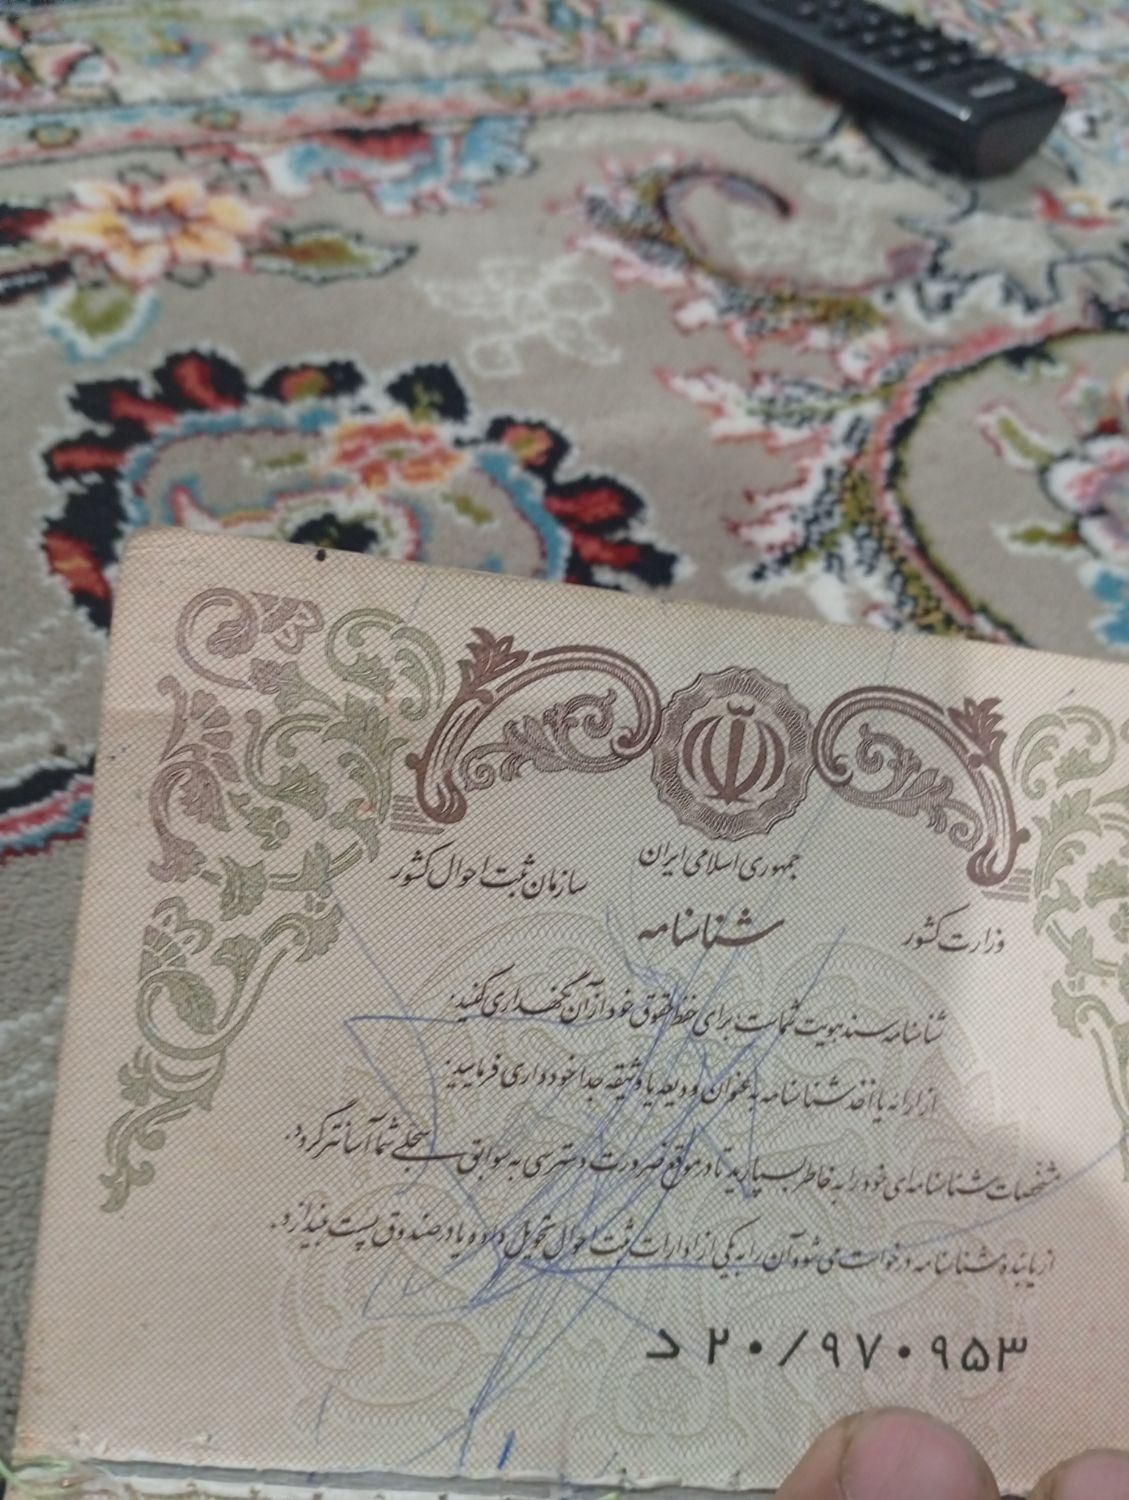 جمهوری اسلامی ایران
وزارت کشور
سازمان ثبت احوال کشور
شناسنامه
شناسنامه سند هویت شماست، برای حفظ حقوق خود از آن نگهداری کنید.
از ارائه یا اخذ شناسنامه به عنوان ودیعه یا وثیقه جدا خودداری فرمایید.
مشخصات شناسنامه‌ای خود را به خاطر بسپارید تا در مواقع ضرورت دسترسی به سوابق سجلی شما آسانتر گردد.
از یابنده شناسنامه درخواست می شود آن را به یکی از ادارات ثبت احوال تحویل داده یا در صندوق پست بیندازد.
د ۲۰/۹۷۰۹۵۳